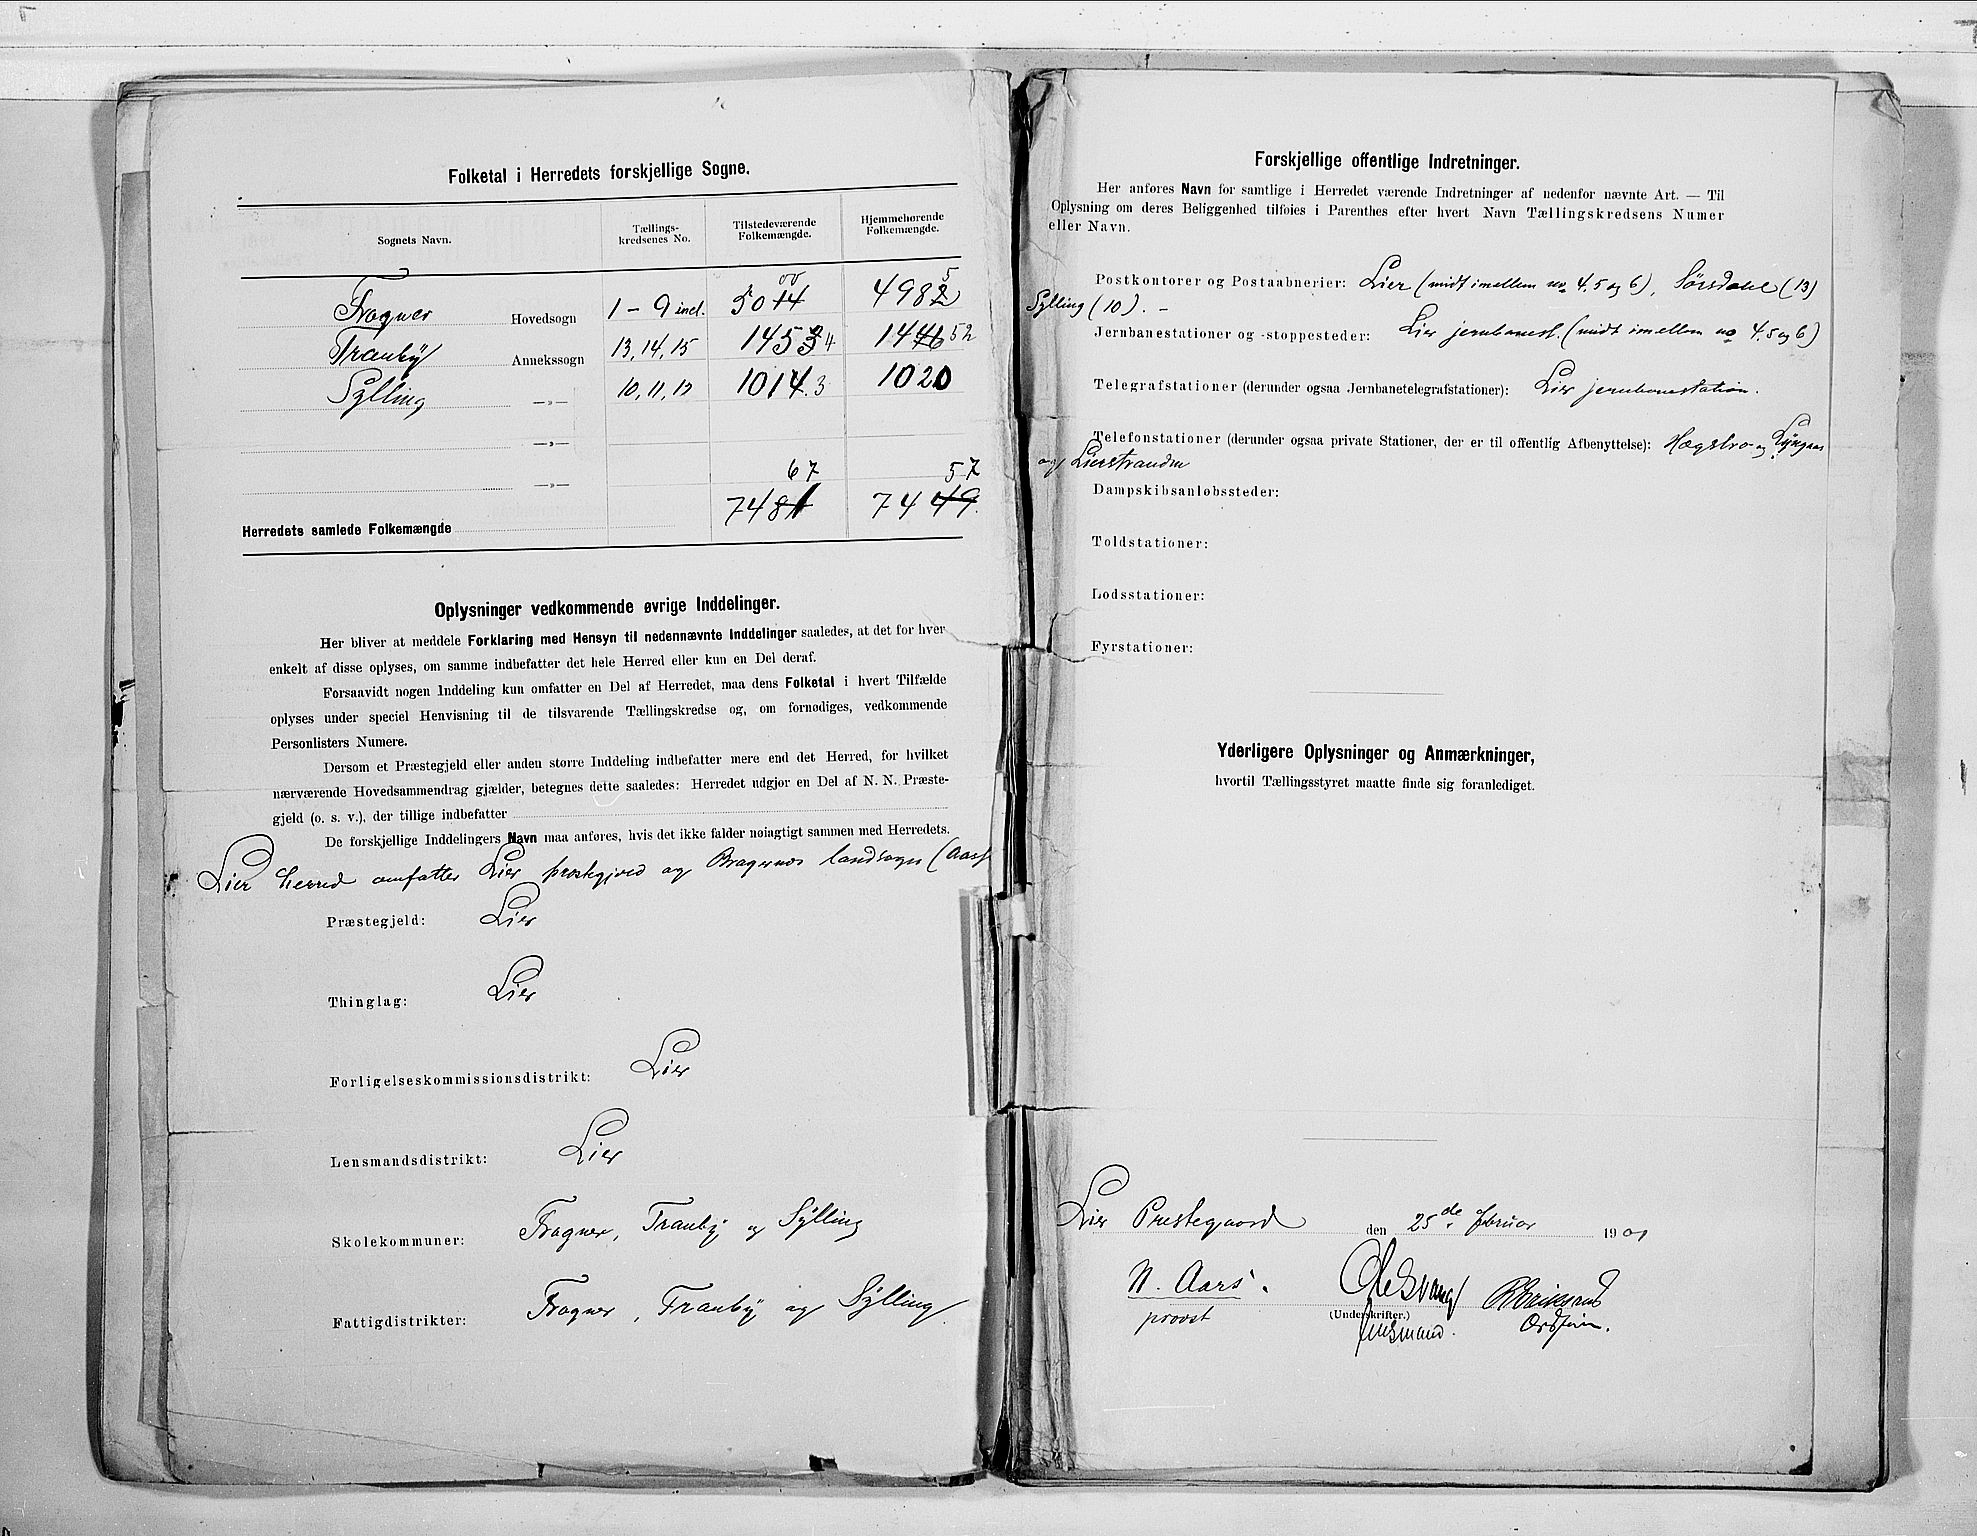 Folketal i Herredets forskjellige Sogne.
Sognets Navn. Tællings-kredsenes No. Tilstedeværende Folkemængde. Hjemmehørende Folkemængde.
00 5
Frogner Hovedsogn 1 – 9 incl. 5014 4982
Tranby Annekssogn 13, 14, 15 1453 4 1446 52
Sylling —„— 10, 11, 12 1014. 3 1020
—„—
67 57
—„—
Herredets samlede Folkemængde 7481 7449.
Oplysninger vedkommende øvrige Inddelinger.
Her bliver at meddele Forklaring med Hensyn til nedennævnte Inddelinger saaledes, at det for hver
enkelt af disse oplyses, om samme indbefatter det hele Herred eller kun en Del deraf.
Forsaavidt nogen Inddeling kun omfatter en Del af Herredet, maa dens Folketal i hvert Tilfælde
oplyses under speciel Henvisning til de tilsvarende Tællingskredse og, om fornødiges, vedkommende
Personlisters Numere.
Dersom et Præstegjeld eller anden større Inddeling indbefatter mere end det Herred, for hvilket
nærværende Hovedsammendrag gjælder, betegnes dette saaledes: Herredet udgjør en Del af N. N. Præste-
gjeld (o. s. v.), der tillige indbefatter
De forskjellige Inddelingers Navn maa anføres, hvis det ikke falder nøiagtigt sammen med Herredets.
Lier herred omfatter Lier prestegjeld og Bragernes landsogn (Aas
Præstegjeld: Lier
Thinglag: Lier
Forligelseskommissionsdistrikt: Lier
Lensmandsdistrikt: Lier
Skolekommuner: Frogner, Tranby og Sylling
Fattigdistrikter: Frogner, Tranby og Sylling
Forskjellige offentlige Indretninger.
Her anføres Navn for samtlige i Herredet værende Indretninger af nedenfor nævnte Art. — Til
Oplysning om deres Beliggenhed tilføies i Parenthes efter hvert Navn Tællingskredsens Numer
eller Navn.
Postkontorer og Postaabnerier: Lier (midt imellem no 4, 5 og 6), Sørsdale (13)
Sylling (10). –
Jernbanestationer og -stoppesteder: Lier jernbanest. (midt imellem no 4, 5 og 6)
Telegrafstationer (derunder ogsaa Jernbanetelegrafstationer): Lier jernbanestation.
Telefonstationer (derunder ogsaa private Stationer, der er til offentlig Afbenyttelse): Hægsbro og
og Lierstranden
Dampskibsanløbssteder:
Toldstationer:
Lodsstationer:
Fyrstationer:
Yderligere Oplysninger og Anmærkninger,
hvortil Tællingsstyret maatte finde sig foranlediget.
Lier Prestegaard den 25de februar 1901
N. Aars. Ole Svang
(Underskrifter.)
provst lensmand. Ordfører.